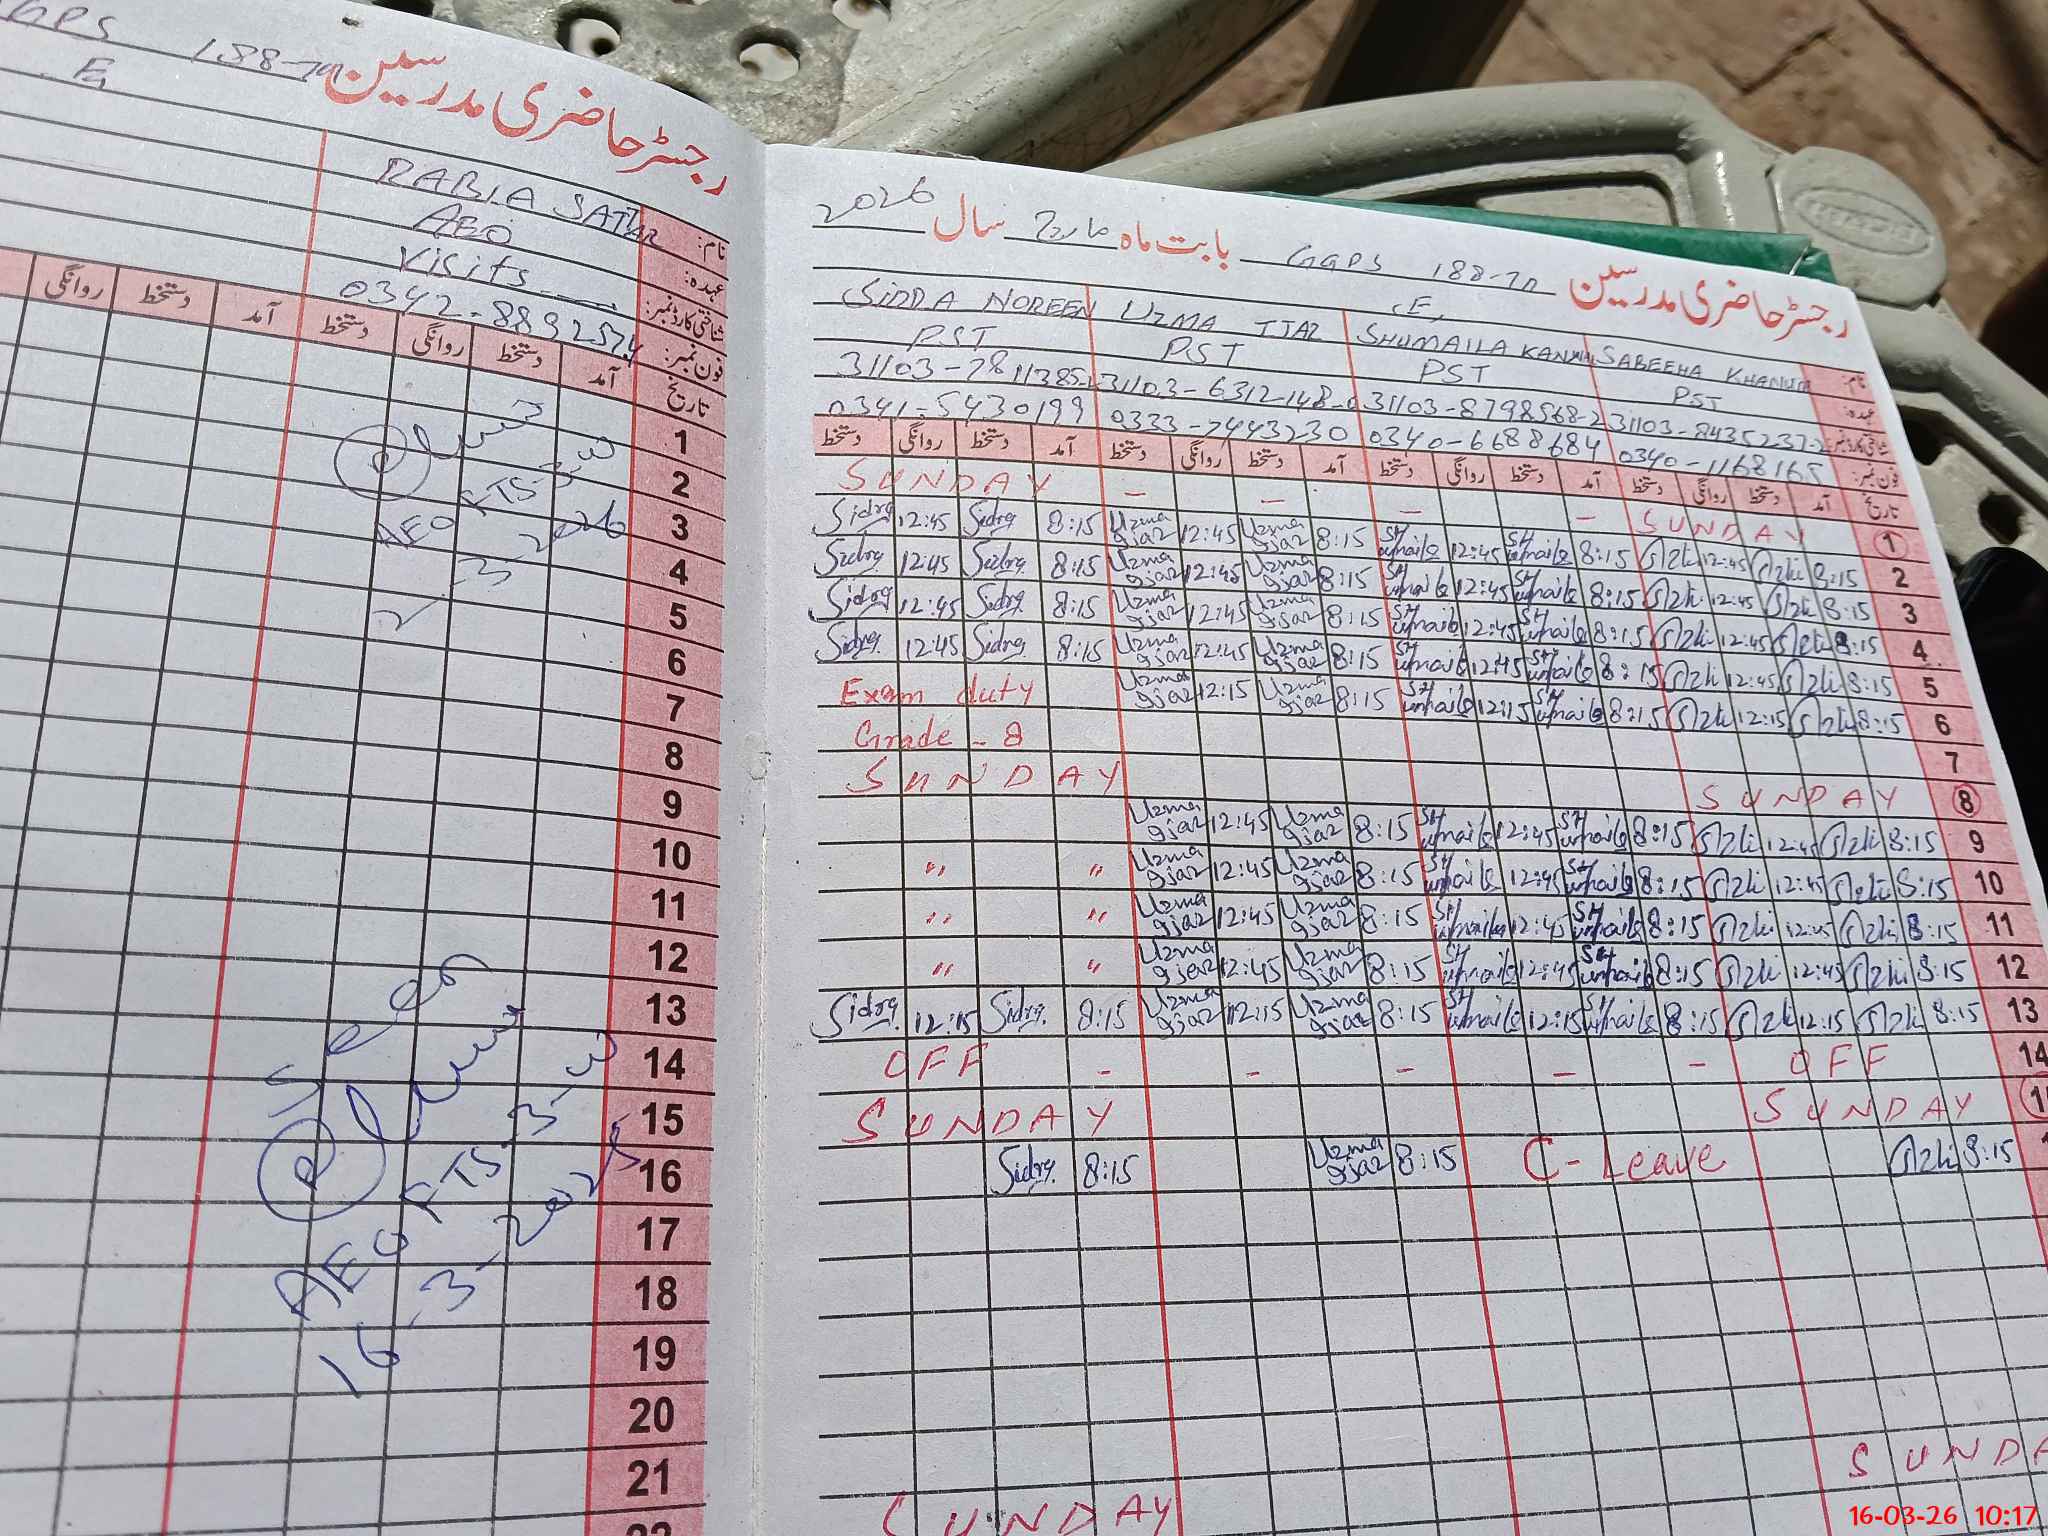 GGPS 188-7R
E,
رجسٹر حاضری مدرسین
نام: RABIA SATTAR
عہدہ: AEO
شناختی کارڈ نمبر: Visits
فون نمبر: 0342-8892574
تاریخ آمد دستخط روانگی دستخط آمد دستخط روانگی
1
2
3
4
5
6
7
8
9
10
11
12
13
14
15
16
17
18
19
20
21
22
AEO FTS-3-W
2-3-2026
AEO FTS-3-W
16-3-202
رجسٹر حاضری مدرسین GGPS 188-7R بابت ماہ مارچ سال 2026
E,
نام: SABEEHA KHANUM SHUMAILA KANWAL UZMA IJAZ SIDRA NOREEN
عہدہ: PST PST PST PST
شناختی کارڈ نمبر: 31103-8435237-2 31103-8798568-2 31103-6312148- 31103-2811385-
فون نمبر: 0340-1168165 0340-6688684 0333-7443230 0341-5430199
تاریخ آمد دستخط روانگی دستخط آمد دستخط روانگی دستخط آمد دستخط روانگی دستخط آمد دستخط روانگی دستخط
SUNDAY - - - - SUNDAY 1
Sidra 12:45 Sidra 8:15 Uzma ijaz 12:45 Uzma ijaz 8:15 Shumaila 12:45 Shumaila 8:15 12:45 8:15 2
Sidra 12:45 Sidra 8:15 Uzma ijaz 12:45 Uzma ijaz 8:15 Shumaila 12:45 Shumaila 8:15 12:45 8:15 3
Sidra 12:45 Sidra 8:15 Uzma ijaz 12:45 Uzma ijaz 8:15 Shumaila 12:45 Shumaila 8:15 12:45 8:15 4
Sidra 12:45 Sidra 8:15 Uzma ijaz 12:45 Uzma ijaz 8:15 Shumaila 12:45 Shumaila 8:15 12:45 8:15 5
Exam duty Uzma ijaz 12:15 Uzma ijaz 8:15 Shumaila 12:15 Shumaila 8:15 12:15 8:15 6
Grade - 8 7
SUNDAY SUNDAY 8
Uzma ijaz 12:45 Uzma ijaz 8:15 Shumaila 12:45 Shumaila 8:15 12:45 8:15 9
" " Uzma ijaz 12:45 Uzma ijaz 8:15 Shumaila 12:45 Shumaila 8:15 12:45 8:15 10
" " Uzma ijaz 12:45 Uzma ijaz 8:15 Shumaila 12:45 Shumaila 8:15 12:45 8:15 11
" " Uzma ijaz 12:45 Uzma ijaz 8:15 Shumaila 12:45 Shumaila 8:15 12:45 8:15 12
Sidra 12:15 Sidra 8:15 Uzma ijaz 12:15 Uzma ijaz 8:15 Shumaila 12:15 Shumaila 8:15 12:15 8:15 13
OFF - - - - - OFF 14
SUNDAY SUNDAY
Sidra 8:15 Uzma ijaz 8:15 C-Leave 8:15
SUNDAY SUNDA
16-03-26 10:17